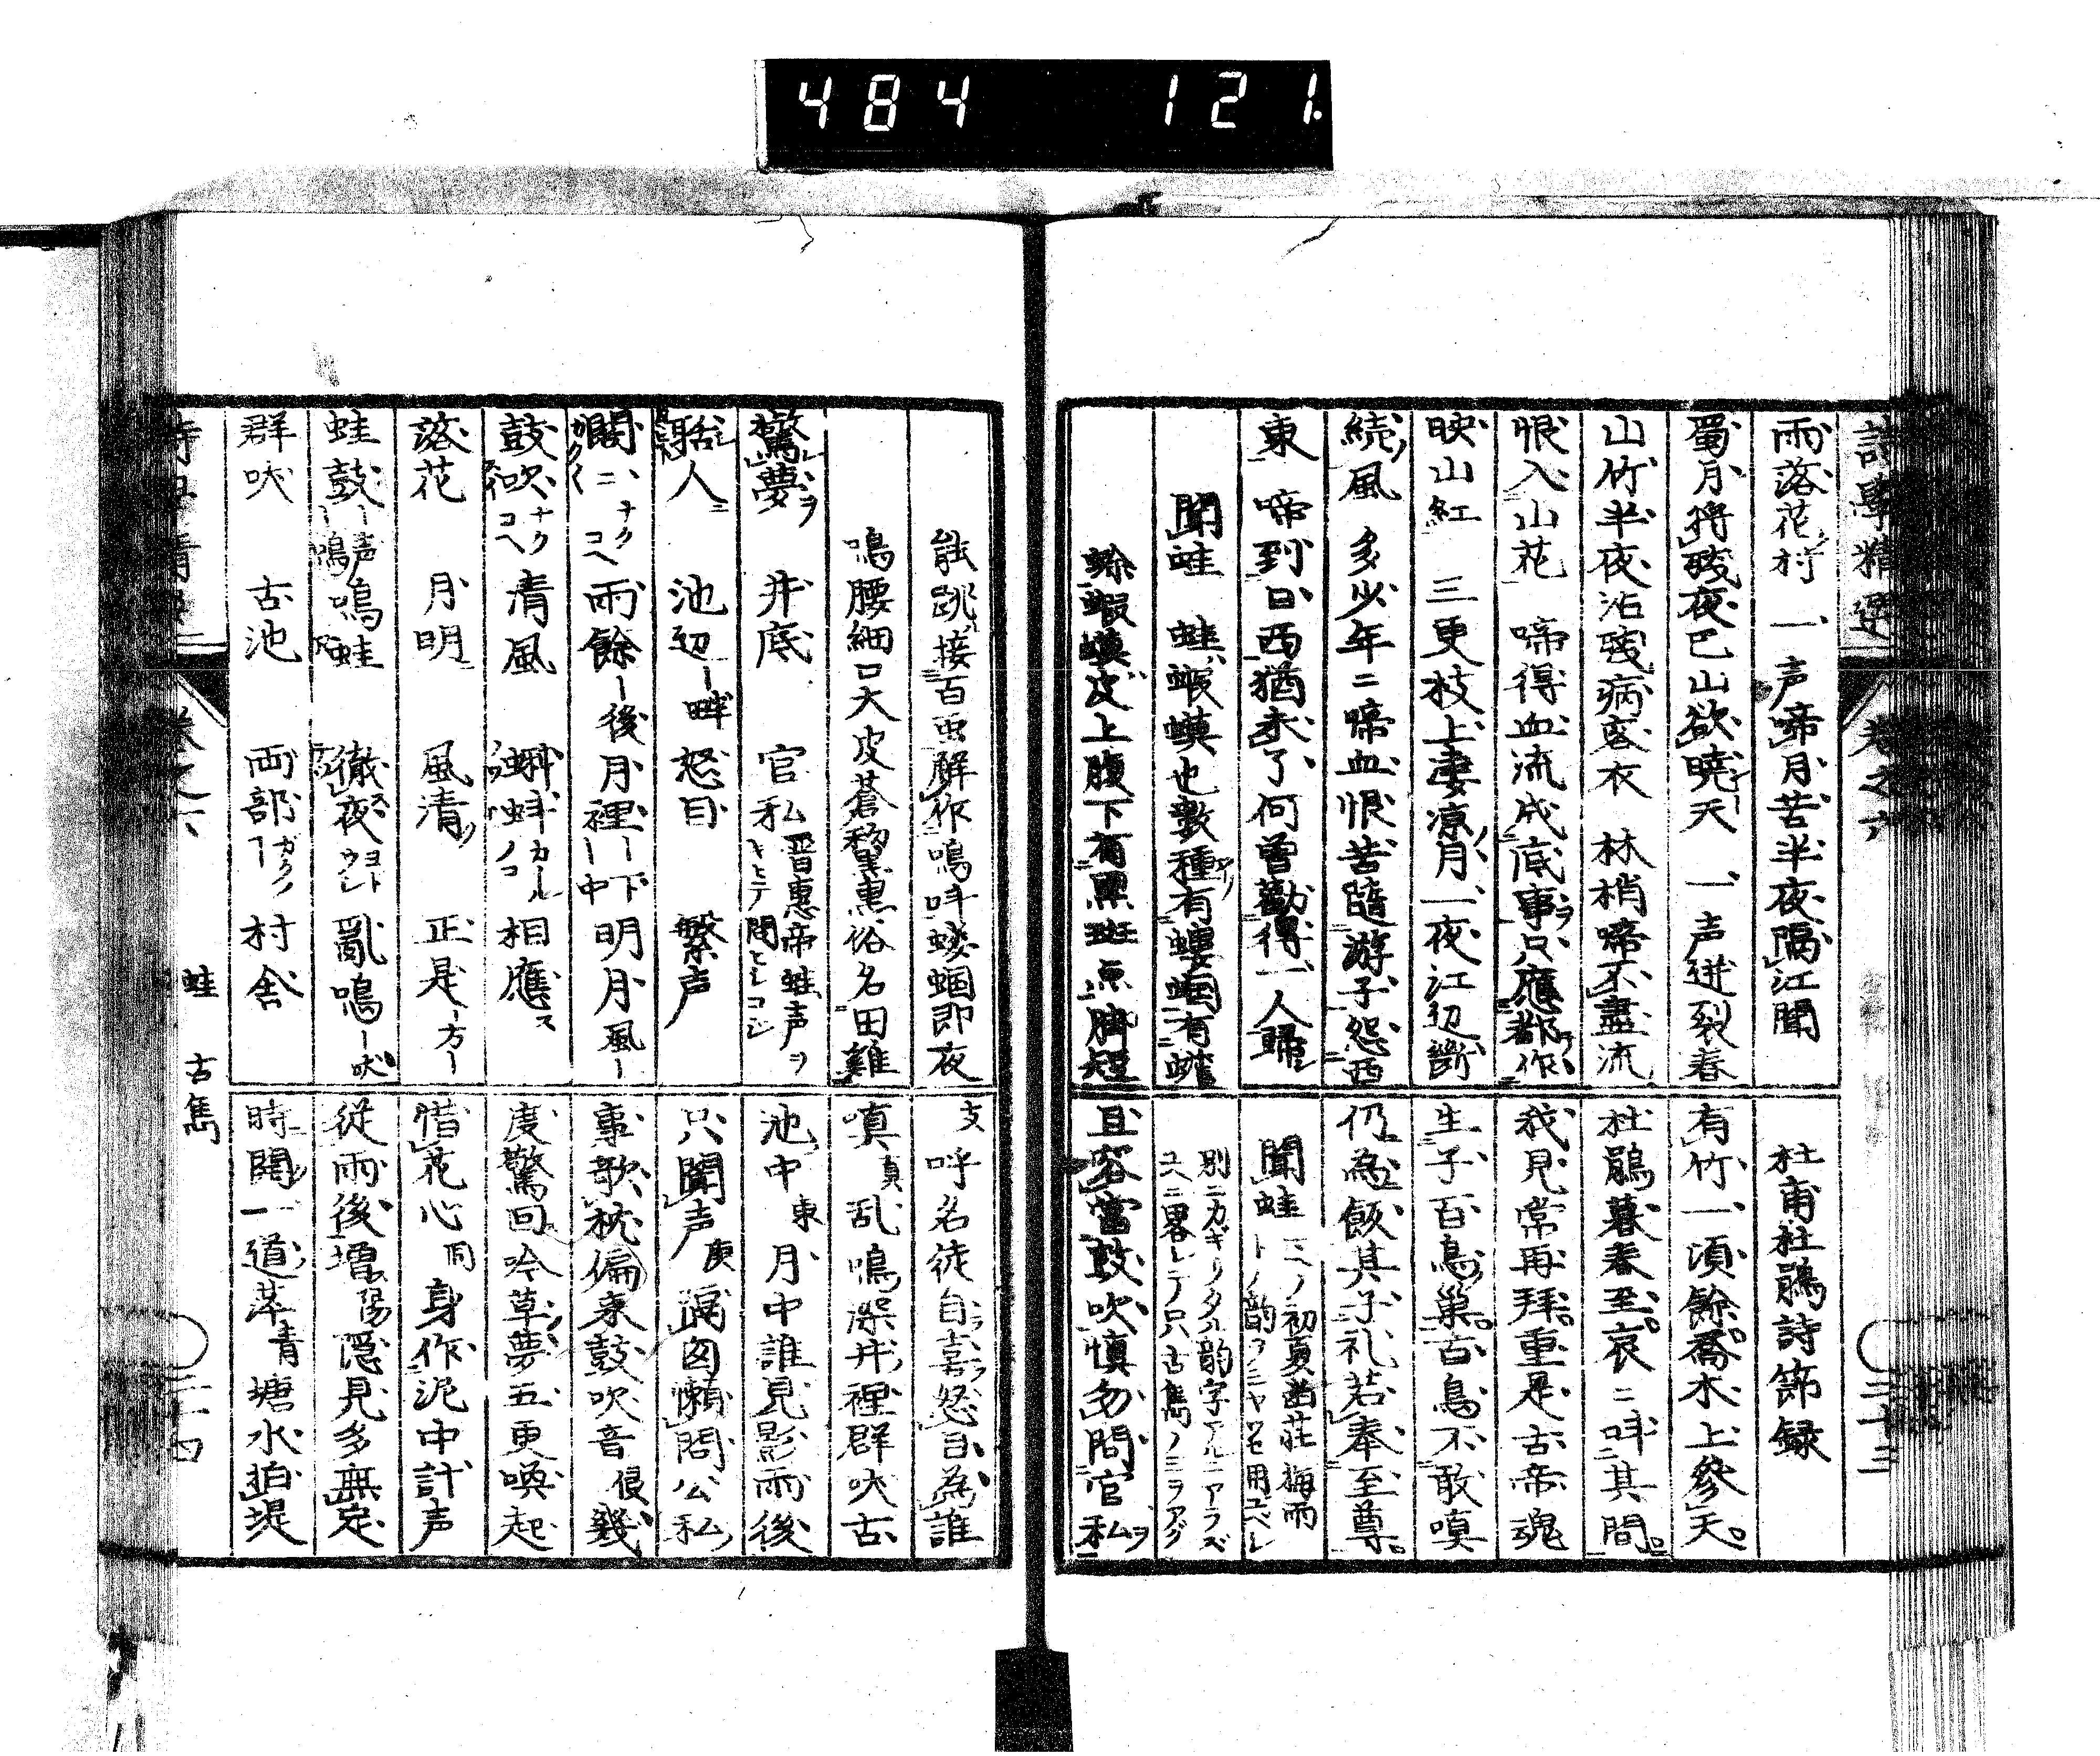 484 121.
詩學精選 卷之六 二十三
雨落花村 一声啼月苦半夜隔江聞
蜀月将残夜巴山欲曉天 一声迸裂春
山竹半夜沾残病客衣 林梢啼不盡流
恨入山花 啼得血流成底事只應都作
映山紅 三更枝上凄凉月一夜江辺断
続風 多少年ニ啼血恨苦隨游子怨西
東 啼到日西猶未了何曽勸得一人帰
聞蛙 蛙蝦蟆也数種有螻蟈有
蜍蝦蟆皮上腹下有黒斑点脚短
杜甫杜鵑詩節録
有竹一頃餘喬木上參天
杜鵑暮春至哀ニ呌其間
我見常再拜重是古帝魂
生子百鳥巣百鳥不敢嗔
仍為飯其子礼若奉至尊
聞蛙 初夏 梅雨
別ニカギリタル韵字アルニアラズ
ユヘニ畧シテ只古雋ノミヲアグ
且容當鼓吹慎勿問官私ヲ
能跳接百虫解作鳴呌螻蟈即夜
鳴腰細口大皮蒼黒俗名田雞
驚夢ヲ 井底 官私 晋惠帝蛙声ヲ
聒人ニ 池辺ー畔 怒目 繁声
閣ニ ナク コヘ 雨餘ー後 月裡ー下ー中 明月 風ー
鼓吹 ナク コヘ 青風 蝌蚪 カールノコ 相應ス
落花 月明 風清 正是ー方ー
蛙鼓ー声ー鳴 鳴蛙 徹夜 亂鳴ー吠
群吠 古池 両部 ガクノ 村舎
支 呼名徒自喜怒目為誰
嗔 真 乱鳴深井裡群吠古
池中 東 月中誰見影雨後
只聞声 庚 懶問公私
事欹枕偏来鼓吹音 侵 幾
度驚回吟草夢五更喚起
惜花心 同 身作泥中計声
從雨後増 陽 隠見多無定
時聞一道萍 青 塘水拍堤
蛙 古雋